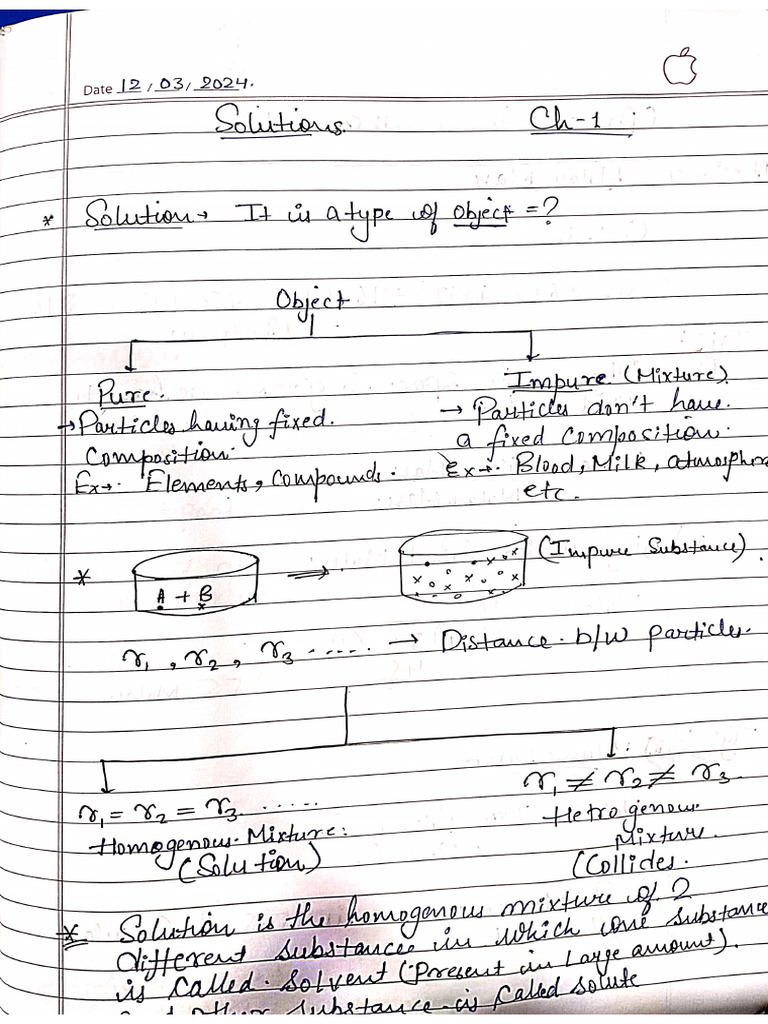 Date 12/03/2024.
Solutions. Ch-1
* Solution→ It is a type of object = ?
Object
Pure. Impure (Mixture)
→ Particles having fixed. → Particles don't have.
composition. a fixed composition.
Ex→. Elements, compounds. Ex→. Blood, Milk, atmosphere
etc.
* A + B ⇒ (Impure Substance).
r1, r2, r3 ..... → Distance. b/w particles.
r1 = r2 = r3. ..... r1 ≠ r2 ≠ r3.
Homogenous. Mixture: Hetrogenous.
(Solution) Mixture.
(Collides.
* Solution is the homogenous mixture of 2
different substances in which one substance
is called. solvent (Present in large amount).
and other substance is called solute